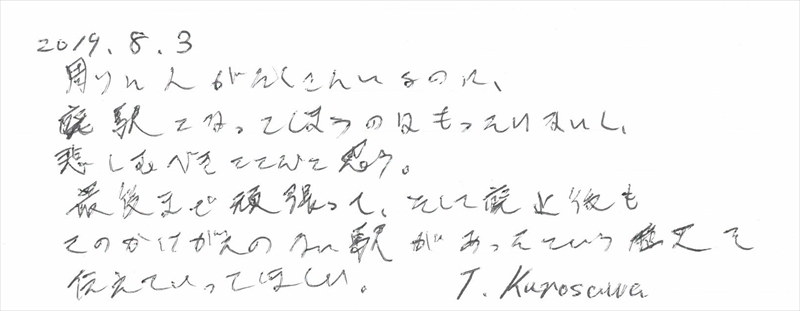 2019.8.3
周りに人がたくさんいるのに、
廃駅になってしまうのはもったいないし、
悲しむべきことだと思う。
最後まで頑張って、そして廃止後も
このかけがえのない駅があったという歴史を
伝えていってほしい。 T. Kurosawa